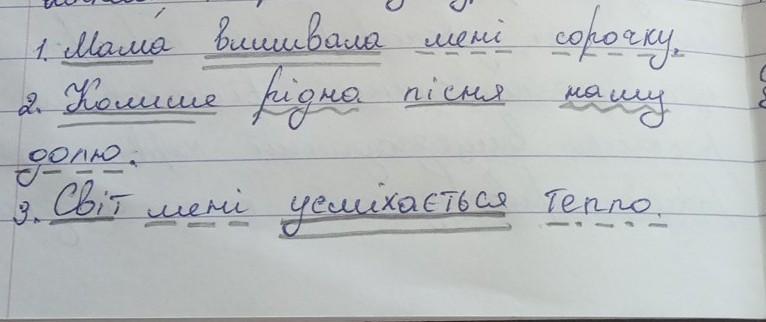 1. Мама вишивала мені сорочку.
2. Колише рідна пісня нашу
долю.
3. Світ мені усміхається тепло.